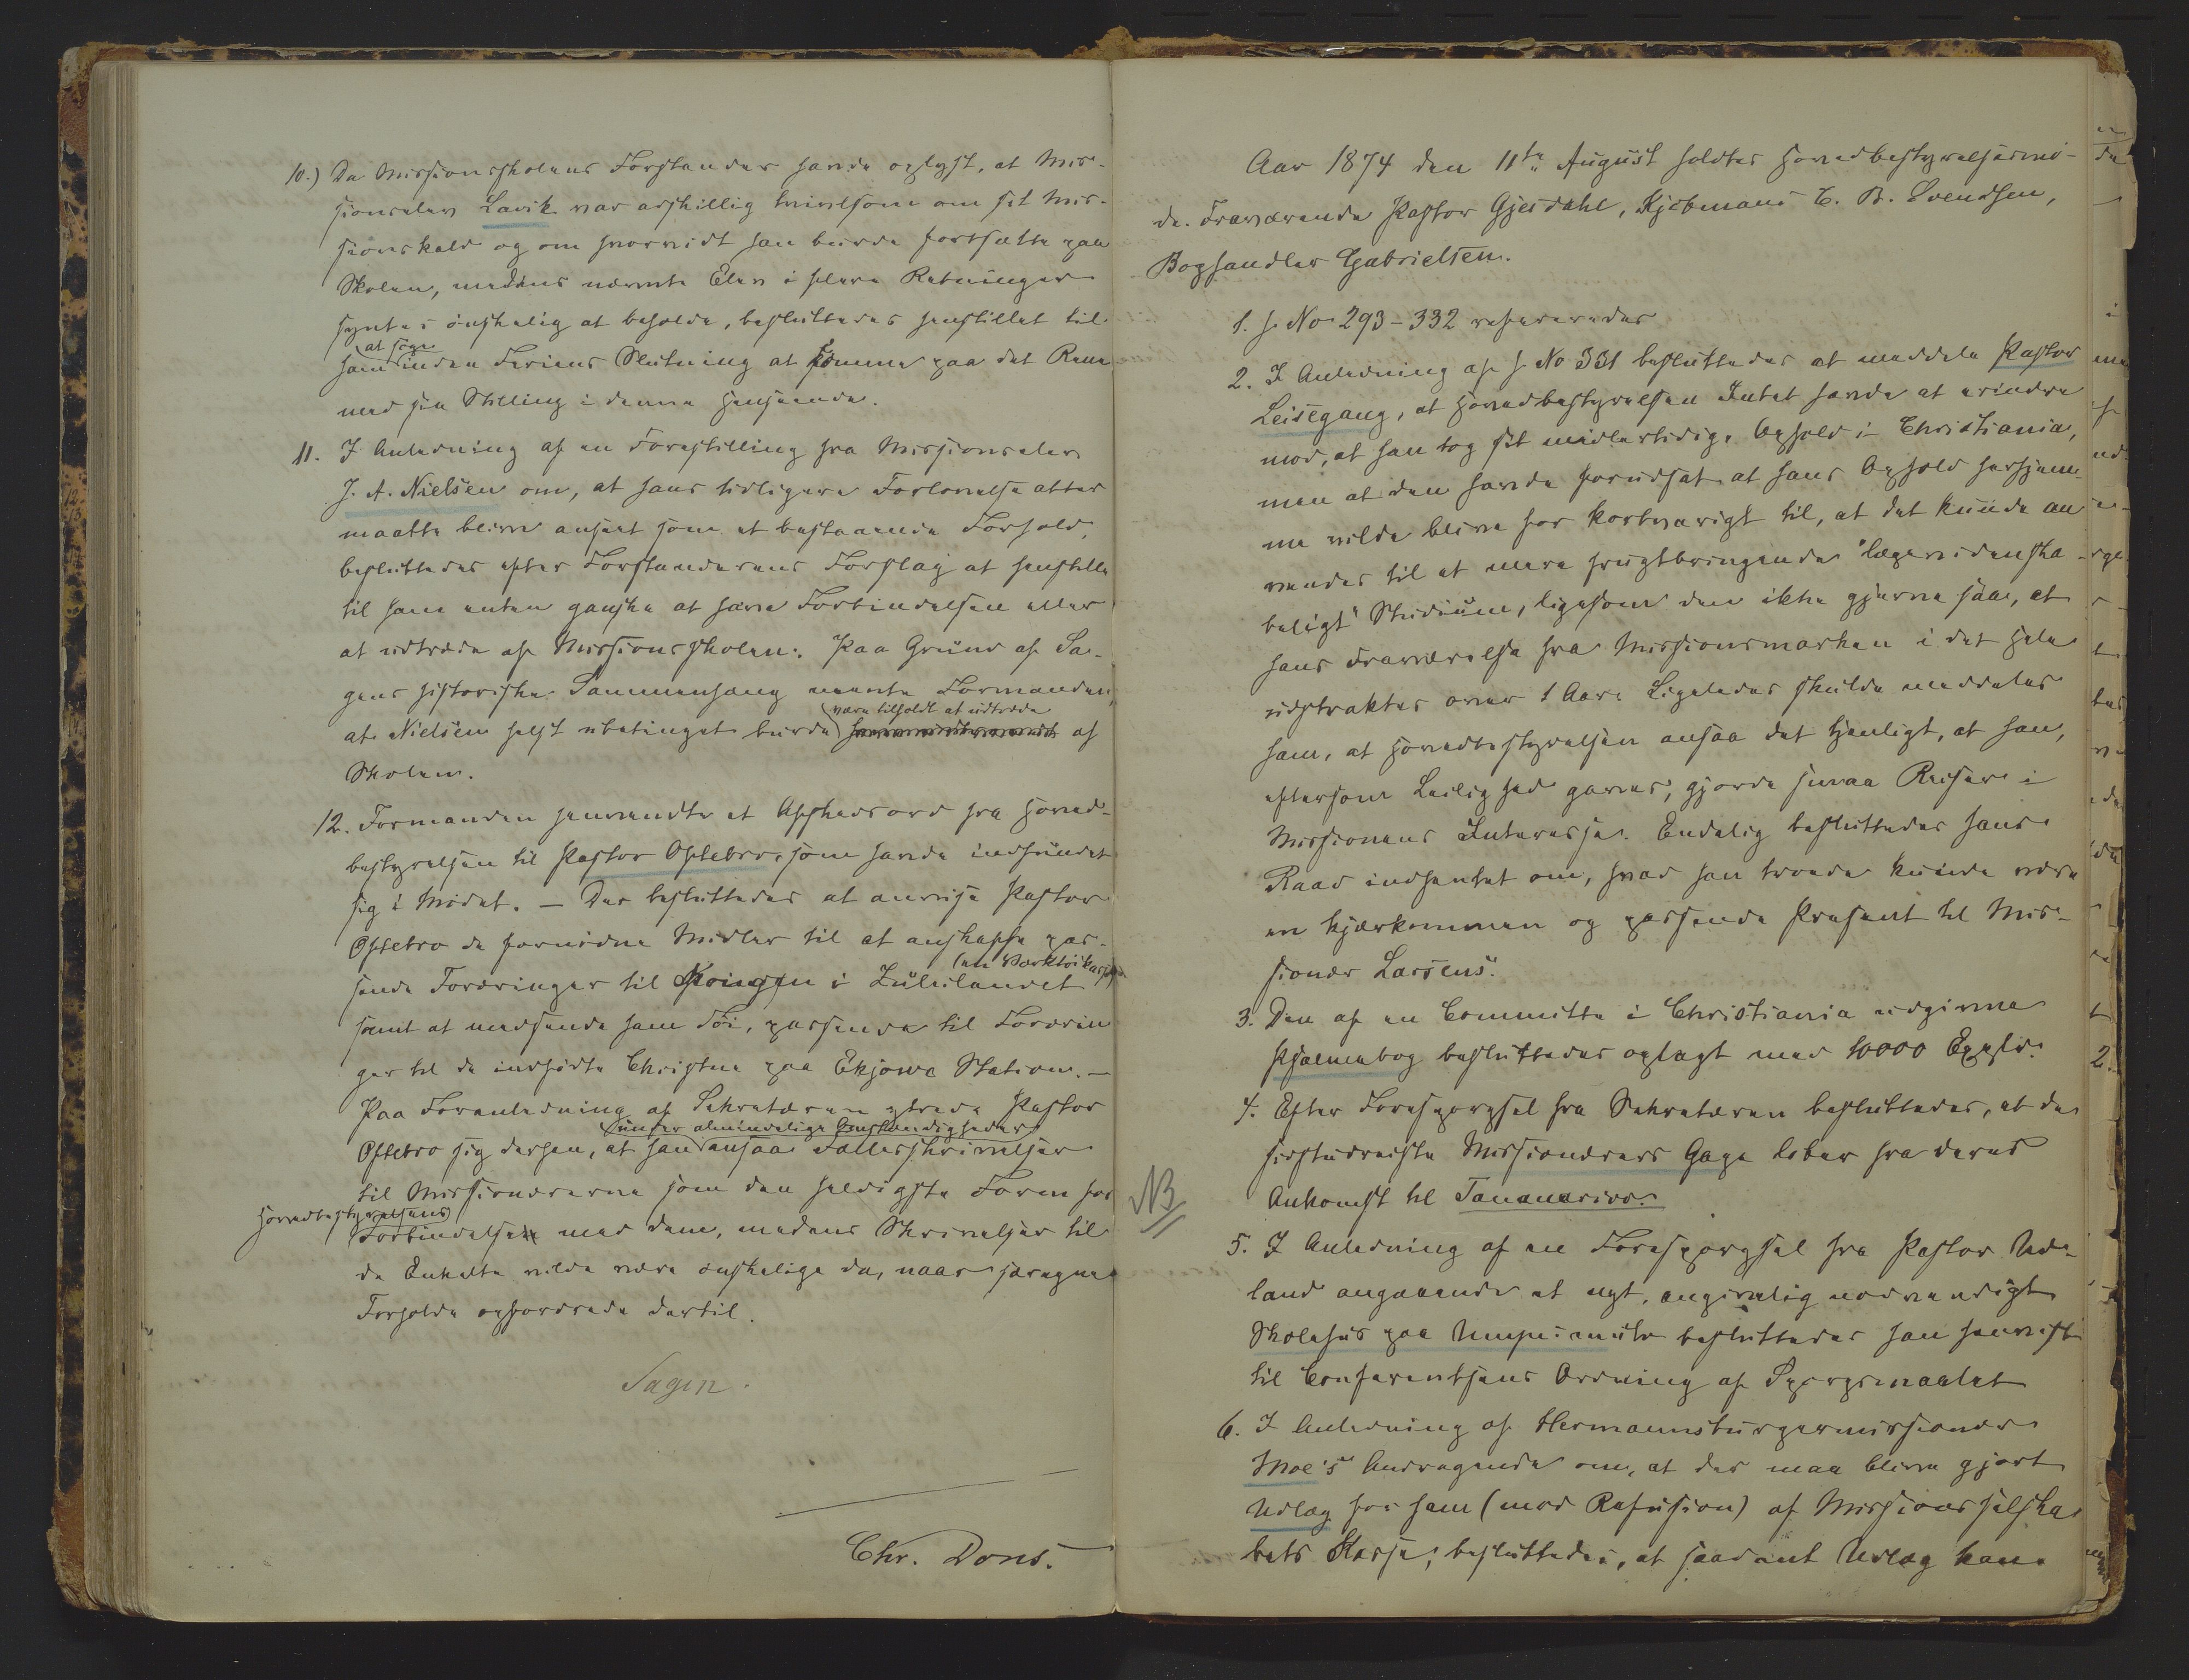 10.) Da Missionsskolens Forstander havde oplyst, at Mis-
sionselev Lavik var adskillig tvivlsom om sit Mis-
sionskald og om hvorvidt han burde fortsætte paa
Skolen, medens nævnte Elev i flere Retninger
syntes ønskelig at beholde, besluttedes henstillet til
ham at søge inden Feriens Slutning at komme paa det Rene
med sin Stilling i denne Henseende.
11. I Anledning af en Forestilling fra Missionselev
J. A. Nielsen om, at hans tidligere Forlovelse atter
maatte blive anseet som et bestaaende Forhold,
besluttedes efter Forstanderens Forslag at henstille
til ham enten ganske at hæve Forbindelsen eller
at udtræde af Missionsskolen. Paa Grund af Sa-
gens historiske Sammenhæng mente Formanden,
at Nielsen helst ubetinget burde være tilholdt at udtræde af
Skolen.
12. Formanden henvendte et Afskedsord fra Hoved-
bestyrelsen til Pastor Oftebro, som havde indfundet
sig i Mødet. — Der besluttedes at anvise Pastor
Oftebro de fornødne Midler til at anskaffe pas-
sende Foræringer til Kongen i Zululandet (en Værktøikasse)
samt at medsende ham Tøi, passende til Forærin
ger til de indfødte Christne paa Ekjowe Station. —
Paa Foranledning af Sekretæren ytrede Pastor
Oftebro sig derhen, at han under almindelige Omstændigheder ansaa Fællesskrivelser
til Missionærerne som den heldigste Form for
Hovedbestyrelsens Forbindelse med dem, medens Skrivelser til
de Enkelte vilde være ønskelige da, naar særegne
Forholde opfordrede dertil.
Sagen.
Chr. Dons.
Aar 1874 den 11te August holdtes Hovedbestyrelsesmø-
de. Fraværende Pastor Gjesdahl, Kjøbmand C. B. Svendsen,
Boghandler Gabrielsen.
1. J. No 293-332 refereredes
2. I Anledning af J. No 331 besluttedes at meddele Pastor
Leisegang, at Hovedbestyrelsen Intet havde at erindre
mod, at han tog sit midlertidige Ophold i Christiania,
men at den havde forudsat at hans Ophold herhjem-
me vilde blive for kortvarigt til, at det kunde an
vendes til et mere frugtbringende "lægevidenska-
beligt" Studium, ligesom den ikke gjerne saa, at
hans Fraværelse fra Missionsmarken i det Hele
udstraktes over 1 Aar. Ligeledes skulde meddeles
ham, at Hovedbestyrelsen ansaa det tjenligt, at han,
eftersom Leilighed gaves, gjorde smaa Reiser i
Missionens Interesse. Endelig besluttedes hans
Raad indhentet om, hvad han troede kunde være
en kjærkommen og passende Præsent til Mis-
sionær Larsens.
3. Den af en Committe i Christiania udgivne
Psalmebog besluttedes oplagt med 10000 Exeplr.
4. Efter Forespørgsel fra Sekretæren besluttedes, at de
sistudreiste Missionærers Gage løber fra deres
Ankomst til Tananarivo.
NB
5. I Anledning af en Forespørgsel fra Pastor Ude-
land angaaende et nyt, angivelig nødvendigt
Skolehus paa Umpumulo besluttedes han henvist
til Conferentsens Ordning af Spørgsmaalet
6. I Anledning af Hermannsburgermissionær
Moe's Andragende om, at der maa blive gjort
Udlæg for ham (mod Refusion) af Missionsselska-
bets Kasse, besluttedes, at saadant Udlæg kan